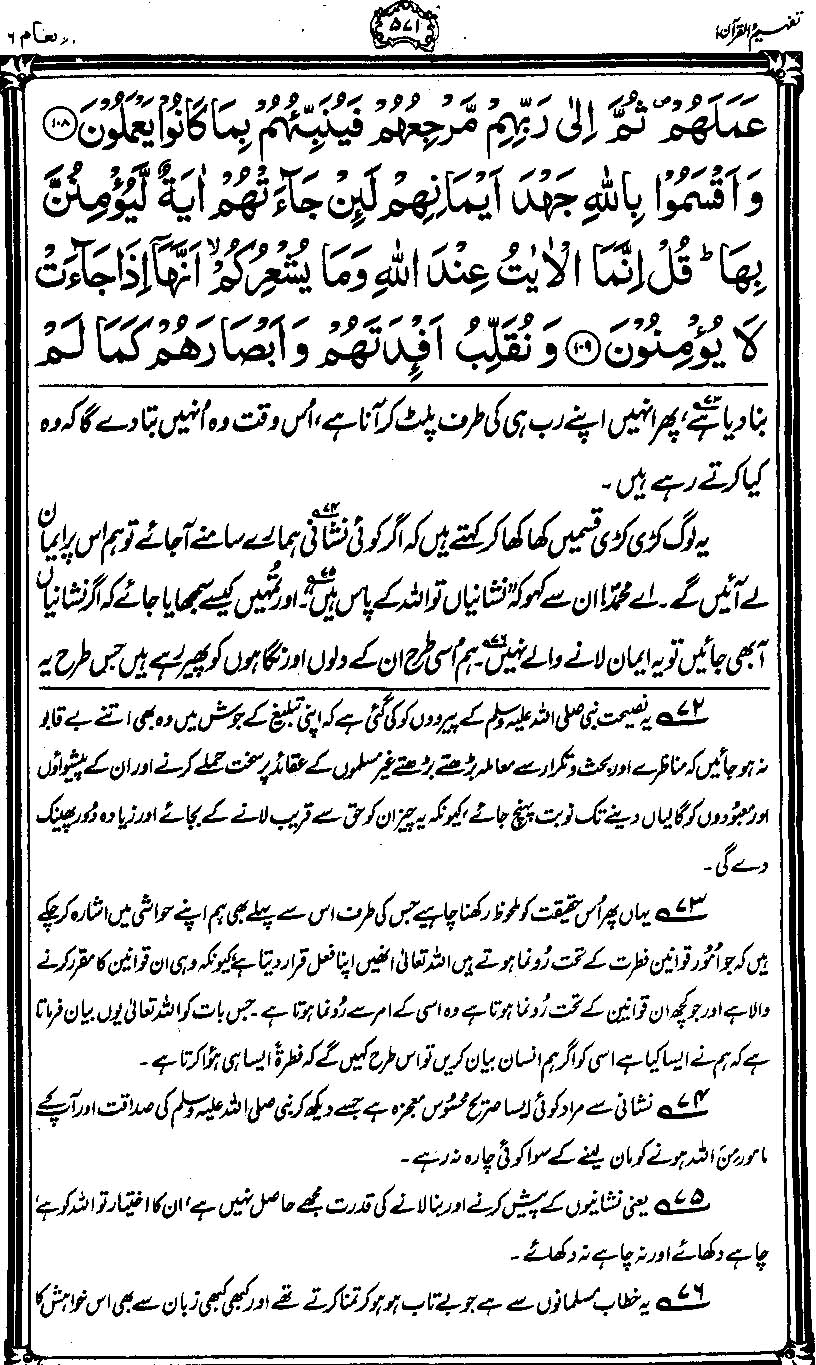 تفہیم القرآن ۱
۵۷۱
الانعام ۶
عَمَلَهُمْ ثُمَّ اِلٰى رَبِّهِمْ مَّرْجِعُهُمْ فَيُنَبِّئُهُمْ بِمَا كَانُوْا يَعْمَلُوْنَ ۝۱۰۸
وَاَقْسَمُوْا بِاللّٰهِ جَهْدَ اَيْمَانِهِمْ لَئِنْ جَآءَتْهُمْ اٰيَةٌ لَّيُؤْمِنُنَّ
بِهَا ؕ قُلْ اِنَّمَا الْاٰيٰتُ عِنْدَ اللّٰهِ وَمَا يُشْعِرُكُمْ ۙ اَنَّهَاۤ اِذَا جَآءَتْ
لَا يُؤْمِنُوْنَ ۝۱۰۹ وَنُقَلِّبُ اَفْـِٕدَتَهُمْ وَاَبْصَارَهُمْ كَمَا لَمْ
بنا دیا ہے۷۳، پھر انہیں اپنے رب ہی کی طرف پلٹ کر آنا ہے، اُس وقت وہ اُنہیں بتا دے گا کہ وہ
کیا کرتے رہے ہیں۔
یہ لوگ کڑی کڑی قسمیں کھا کھا کر کہتے ہیں کہ اگر کوئی نشانی۷۴ ہمارے سامنے آجائے تو ہم اس پر ایمان
لے آئیں گے۔ اے محمدؐ! ان سے کہو کہ ”نشانیاں تو اللہ کے پاس ہیں“۷۵۔ اور تُمہیں کیسے سمجھایا جائے کہ اگر نشانیاں
آبھی جائیں تو یہ ایمان لانے والے نہیں۷۶۔ ہم اسی طرح ان کے دلوں اور نگاہوں کو پھیر رہے ہیں جس طرح یہ
۷۲ یہ نصیحت نبی صلی اللہ علیہ وسلم کے پیرووں کو کی گئی ہے کہ اپنی تبلیغ کے جوش میں وہ بھی اتنے بے قابو
نہ ہو جائیں کہ مناظرے اور بحث و تکرار سے معاملہ بڑھتے بڑھتے غیر مسلموں کے عقائد پر سخت حملے کرنے اور ان کے پیشواؤں
اور معبُودوں کو گالیاں دینے تک نوبت پہنچ جائے، کیونکہ یہ چیز ان کو حق سے قریب لانے کے بجائے اور زیادہ دُور پھینک
دے گی۔
۷۳ یہاں پھر اُس حقیقت کو ملحوظ رکھنا چاہیے جس کی طرف اس سے پہلے بھی ہم اپنے حواشی میں اشارہ کر چکے
ہیں کہ جو اُمُور قوانینِ فطرت کے تحت رُونما ہوتے ہیں اللہ تعالیٰ انھیں اپنا فعل قرار دیتا ہے، کیونکہ وہی ان قوانین کا مقرر کرنے
والا ہے اور جو کچھ ان قوانین کے تحت رُونما ہوتا ہے وہ اسی کے امر سے رُونما ہوتا ہے۔ جس بات کو اللہ تعالیٰ یوں بیان فرماتا
ہے کہ ہم نے ایسا کیا ہے اسی کو اگر ہم انسان بیان کریں تو اس طرح کہیں گے کہ فطرۃً ایسا ہی ہؤا کرتا ہے۔
۷۴ نشانی سے مراد کوئی ایسا صریح محسُوس معجزہ ہے جسے دیکھ کر نبی صلی اللہ علیہ وسلم کی صداقت اور آپ کے
مامور من اللہ ہونے کو مان لینے کے سوا کوئی چارہ نہ رہے۔
۷۵ یعنی نشانیوں کے پیش کرنے اور بنا لانے کی قدرت مجھے حاصل نہیں ہے، ان کا اختیار تو اللہ کو ہے،
چاہے دکھائے اور نہ چاہے نہ دکھائے۔
۷۶ یہ خطاب مسلمانوں سے ہے جو بے تاب ہو ہو کر تمنا کرتے تھے اور کبھی کبھی زبان سے بھی اس خواہش کا